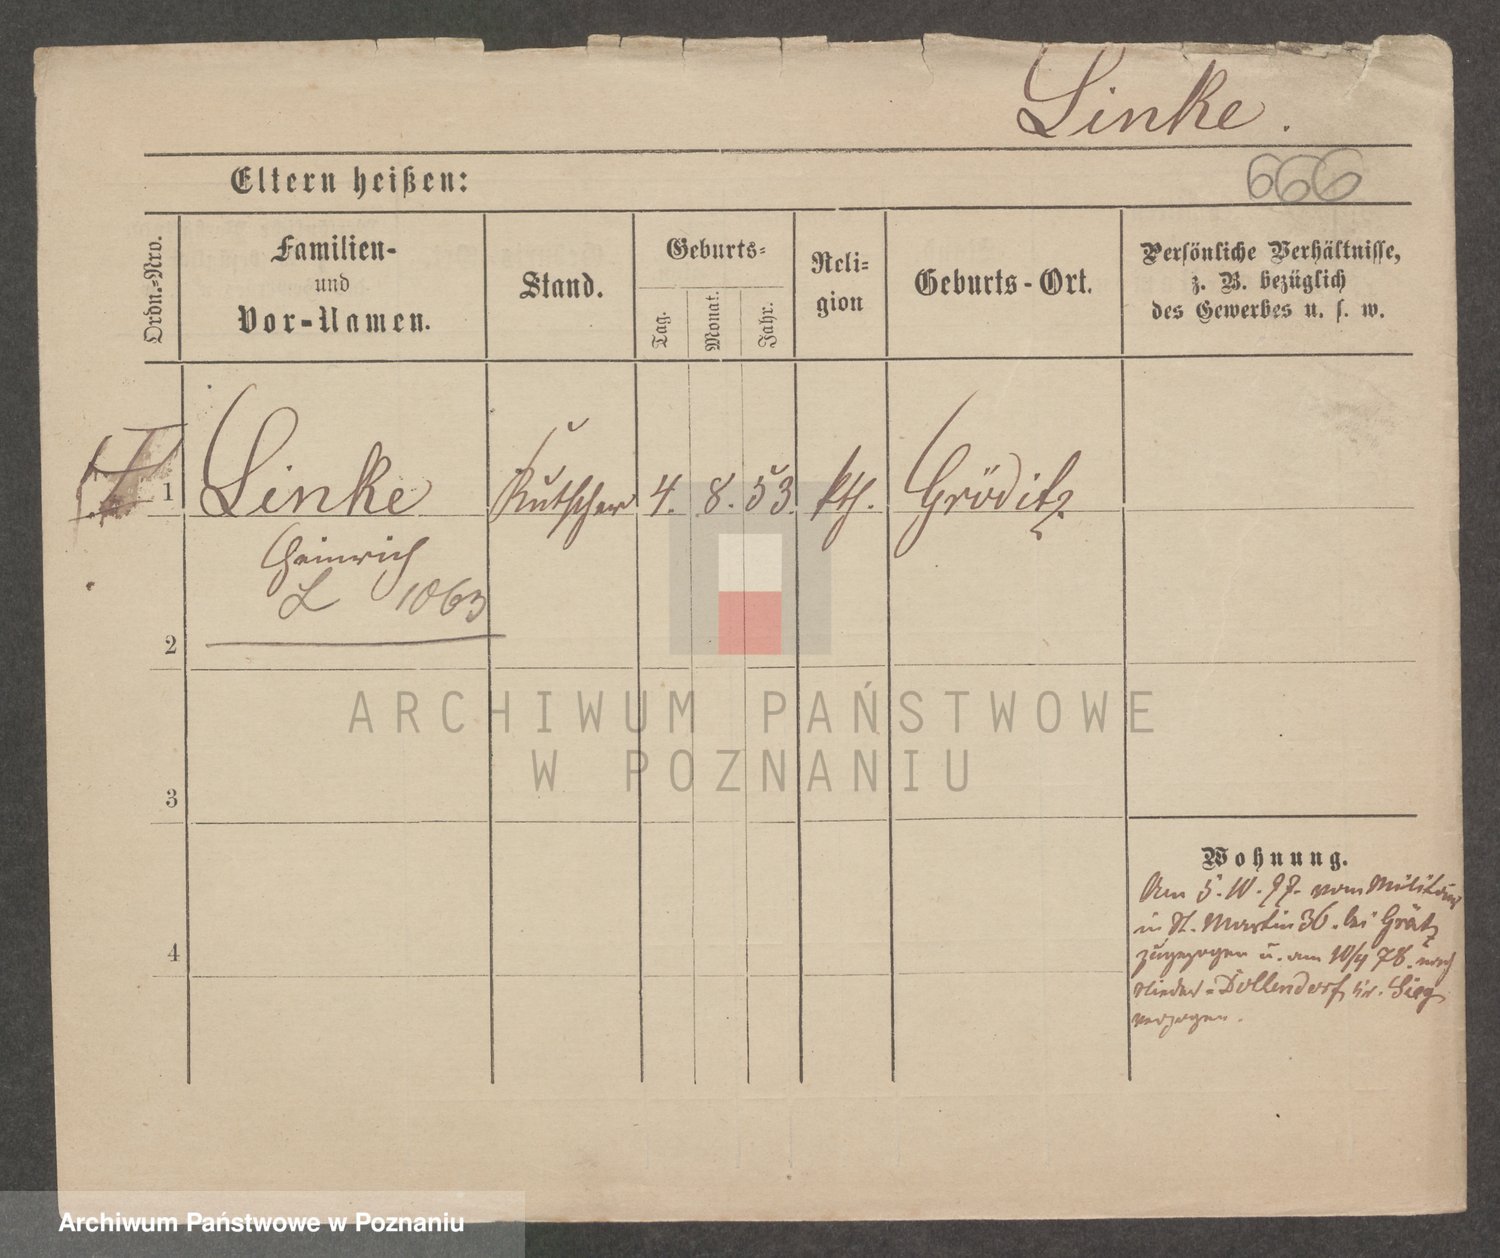 Linke.
Eltern heißen:
666
Ordn.=Nro.
Familien-
und
Vor-Namen.
Stand.
Geburts-
Tag.
Monat.
Jahr.
Reli-
gion
Geburts-Ort.
Persönliche Verhältnisse,
z. B. bezüglich
des Gewerbes u. s. w.
1
Linke Kutscher 4. 8. 53. kth. Gröditz
Heinrich
L 1063
2
3
4
Wohnung.
Am 5. 10. 77. vom Militair
in St. Martin 36. bei Grätz
zugezogen u. am 10/4 78. nach
Nieder-Dollendorf, Kr. Sieg
verzogen.
ARCHIWUM PAŃSTWOWE
W POZNANIU
Archiwum Państwowe w Poznaniu